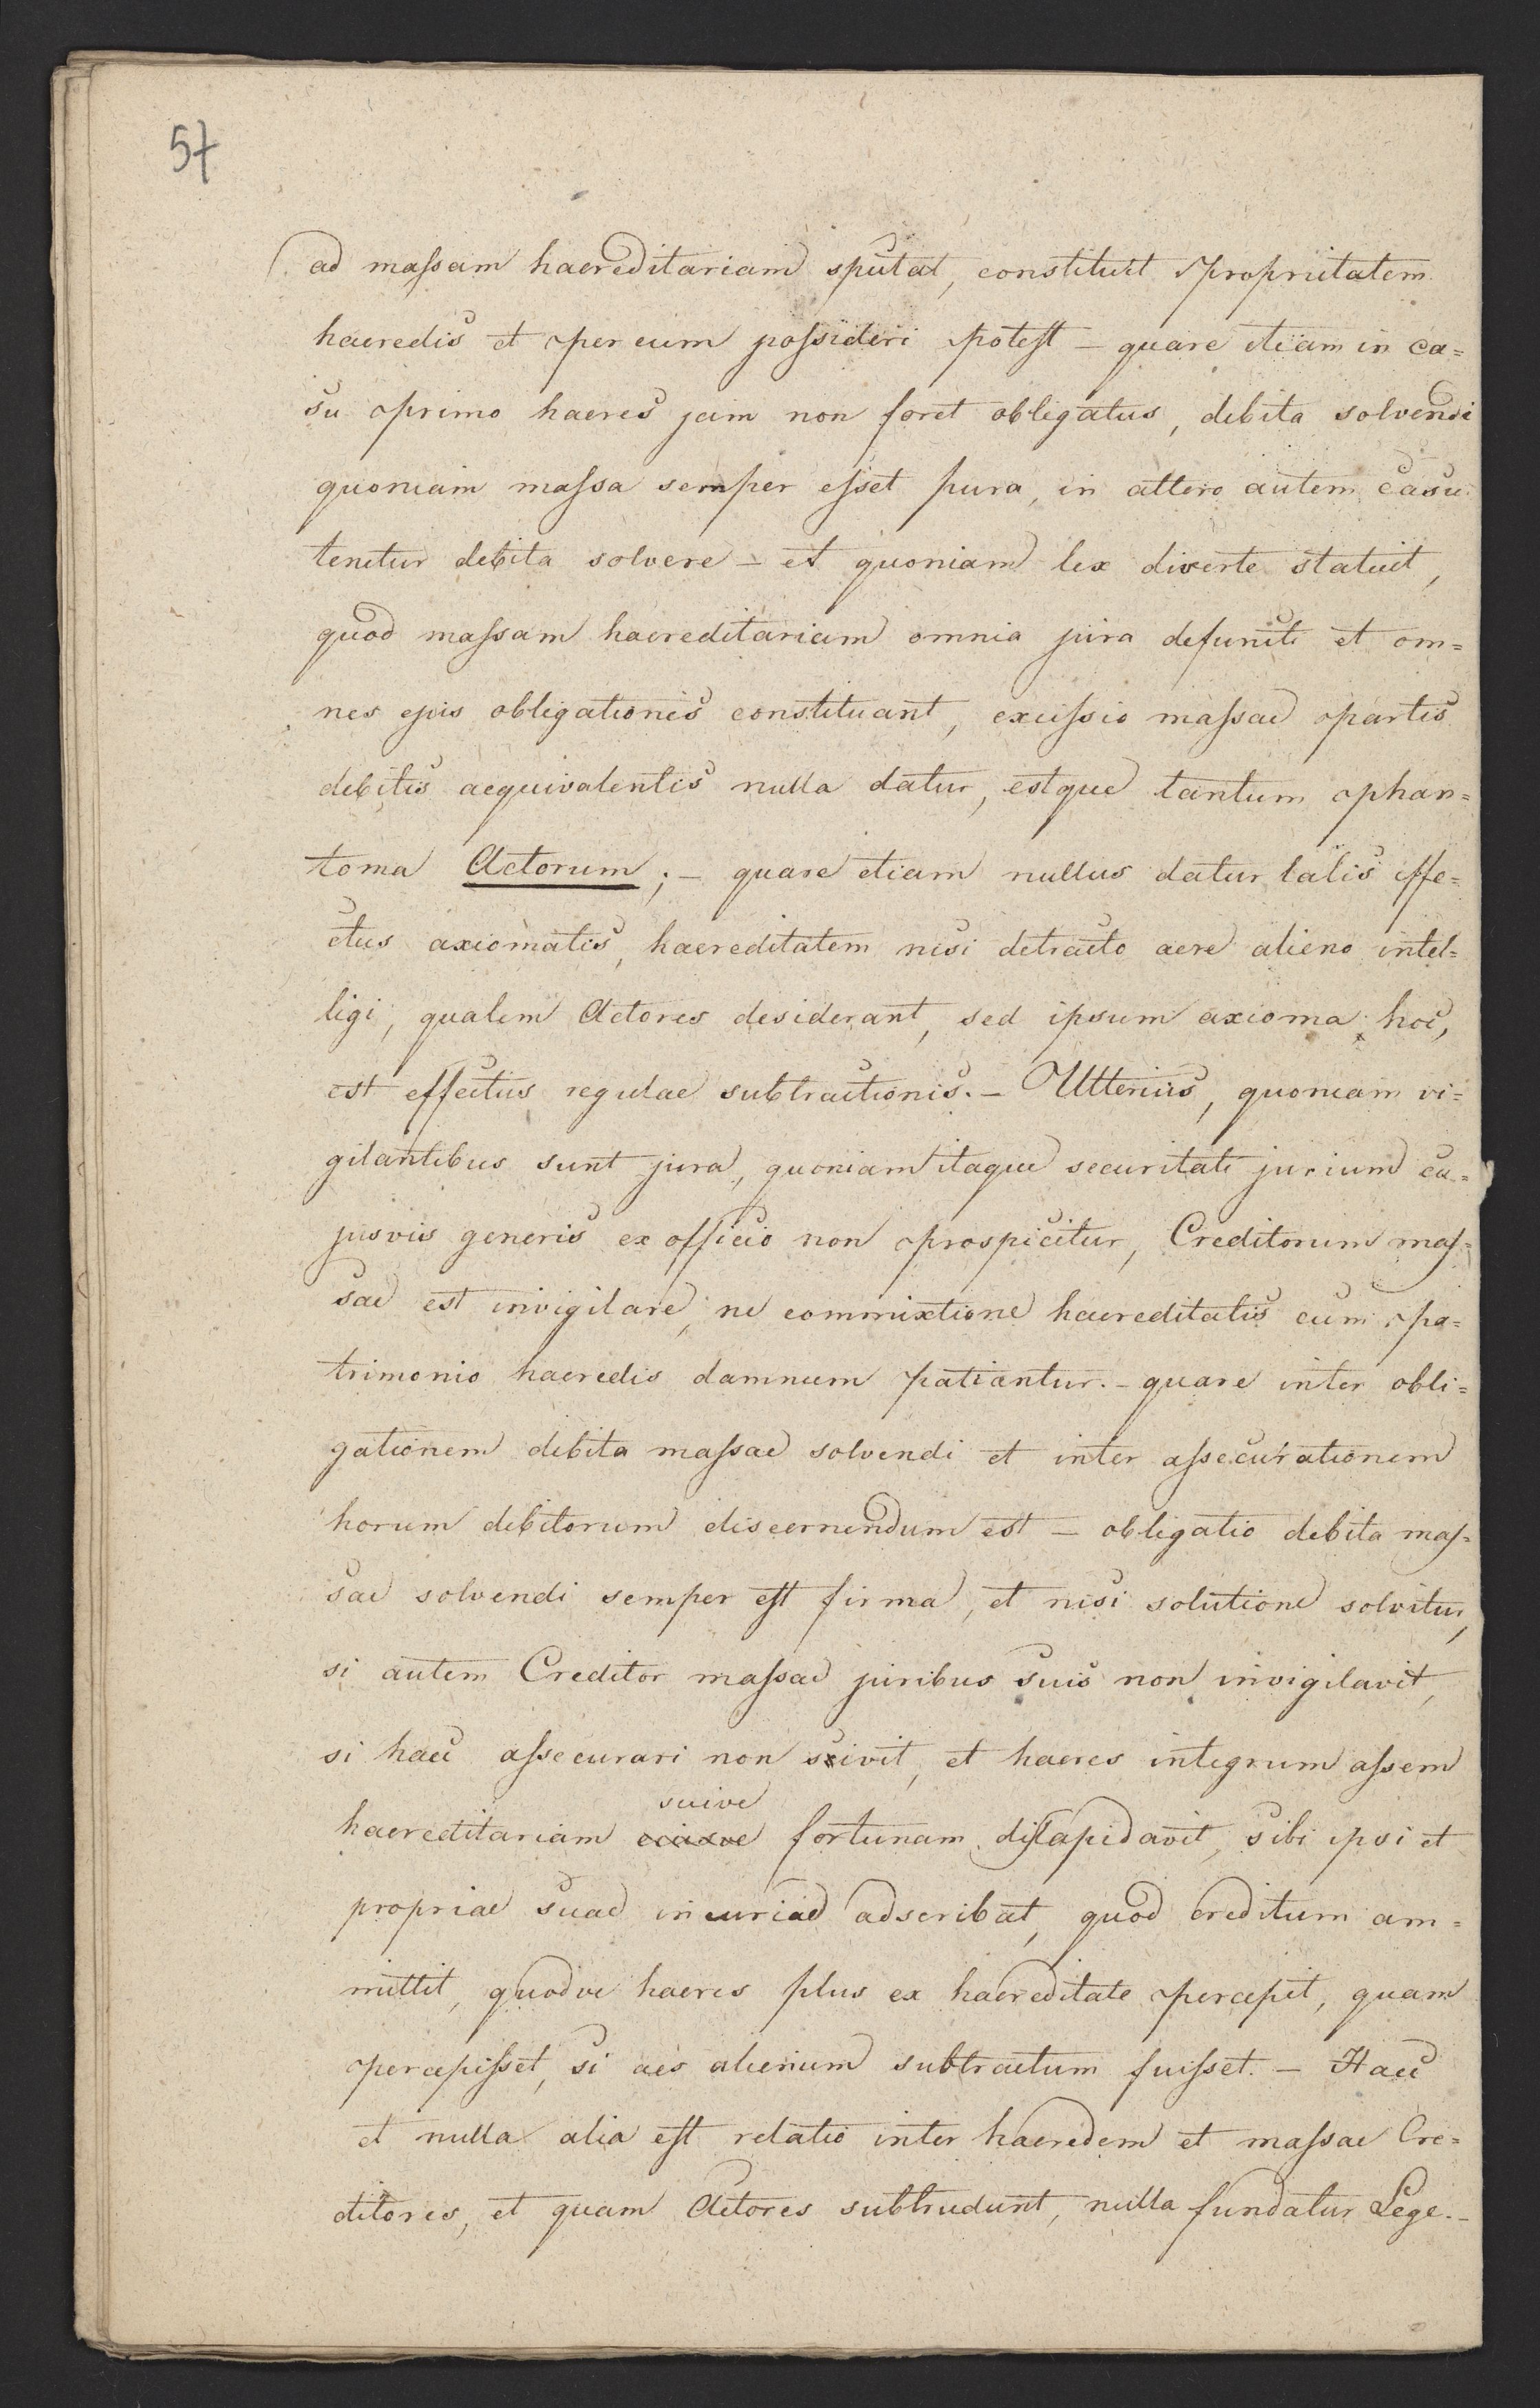 57
ad maſsam haereditariam sputat, constituit proprietatem
haeredis et per eum poſsideri poteſt – quare etiam in ca=
su primo haeres jam non foret obligatus, debita solvendi
quoniam maſsa semper eſset pura, in altero autem casu
tenetur debita solvere – et quoniam lex diserte statuit,
quod maſsam haereditariam omnia jura defuncti et om=
nes ejus obligationes constituant, exciſsio maſsae partis
debitis aequivalentis nulla datur, estque tantum phan=
toma Actorum; – quare etiam nullus datur talis effe=
ctus axiomatis, haereditatem nisi detracto aere alieno intel=
ligi, qualem Actores desiderant, sed ipsum axioma hoc,
est effectus regulae subtractionis. – Ulterius, quoniam vi=
gilantibus sunt jura, quoniam itaque securitati jurium cu=
jusvis generis ex officio non prospicitur, Creditorum maſ=
sae est invigilare, ne commixtione haereditatis cum pa=
trimonio haeredis damnum patiantur. – quare inter obli=
gationem debita maſsae solvendi et inter aſsecurationem
horum debitorum discernendum est – obligatio debita maſ=
sae solvendi semper eſt firma, et nisi solutione solvitur,
si autem Creditor maſsae juribus suis non invigilavit,
si haec aſsecurari non scivit, et haeres integrum aſsem
suive
haereditariam fortunam dilapidavit, sibi ipsi et
propriae suae incuriae adscribat, quod creditum am=
mittit, quodve haeres plus ex haereditate percepit, quam
percepiſset, si aes alienum subtractum fuiſset. – Haec
et nulla alia eſt relatio inter haeredem et maſsae Cre=
ditores, et quam Actores subtrudunt, nulla fundatur Lege. –